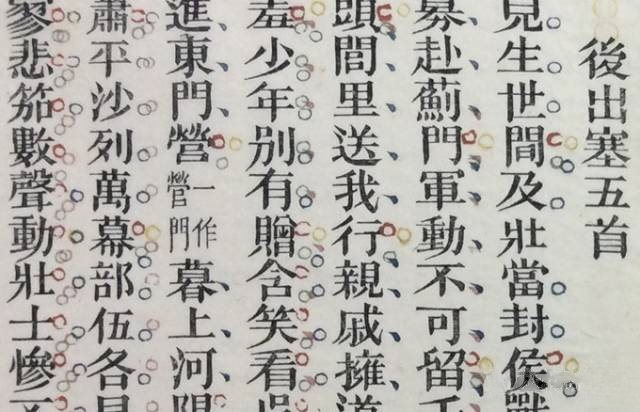 後出塞五首
兒生世間及壯當封侯戰
募赴薊門軍動不可留千
頭閭里送我行親戚擁道
羞少年別有贈含笑看吳
進東門營一作營門暮上河陽
肅平沙列萬幕部伍各見
寥悲笳數聲動壯士慘不